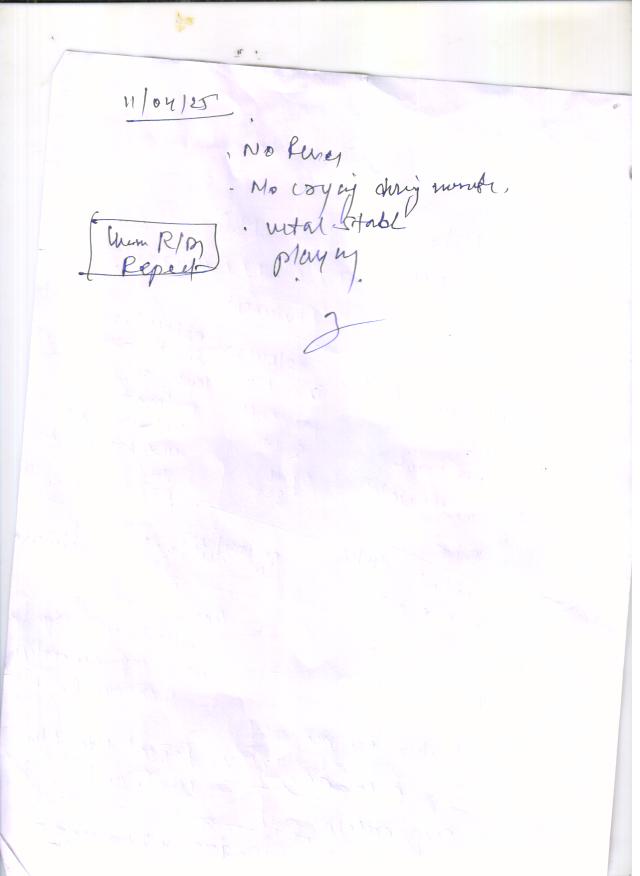 11/04/25
. No fever
. No crying during
. vital stable
playing
Urine R/M
Repeat